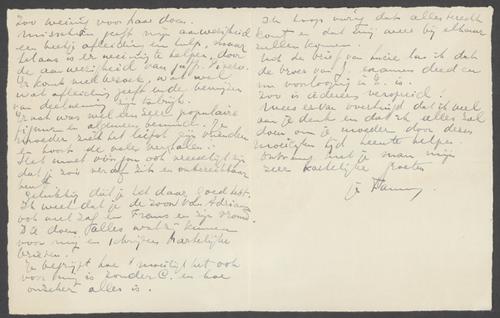 zoo weinig voor haar doen.
Misschien geeft mijn aanwezigheid
een beetje afleiding en hulp, maar
helaas is er weinig te helpen, door
de aanwezigheid van juffr.
Er komt veel bezoek, wat wel
wat afleiding geeft en de bewijzen
van deelneming zijn talrijk.
Er was wel een zeer populaire
figuur en algemeen bemind.
Moeder ziet het liefst zijn vrienden
en hoort de vele verhalen.
Het moet vóór jou ook vreeselijk zijn
dat je zoo ver af zit en onbereikbaar
bent.
Gelukkig dat je het daar goed hebt.
Ik weet dat je de zoon v. d. Adriaan
ook wel zag en Frans en zijn vrouw.
Ze doen alles wat ze kunnen
voor mij en schrijven hartelijke
brieven.
Je begrijpt hoe moeilijk het ook
voor mij is zonder C. en hoe
onzeker alles is.
Ik hoop vurig dat alles terecht
komt en dat wij weer bij elkaar
zullen komen.
Uit de brief van Lucie las ik dat
de broer van J. examen deed en
nu voorloopig in E. is.
Zoo is iedereen verspreid.
Wees ervan overtuigd dat ik veel
aan je denk en dat ik alles zal
doen om je moeder door deze
moeilijke tijd heen te helpen.
Ontvang met je man mijn
zeer hartelijke groeten
je